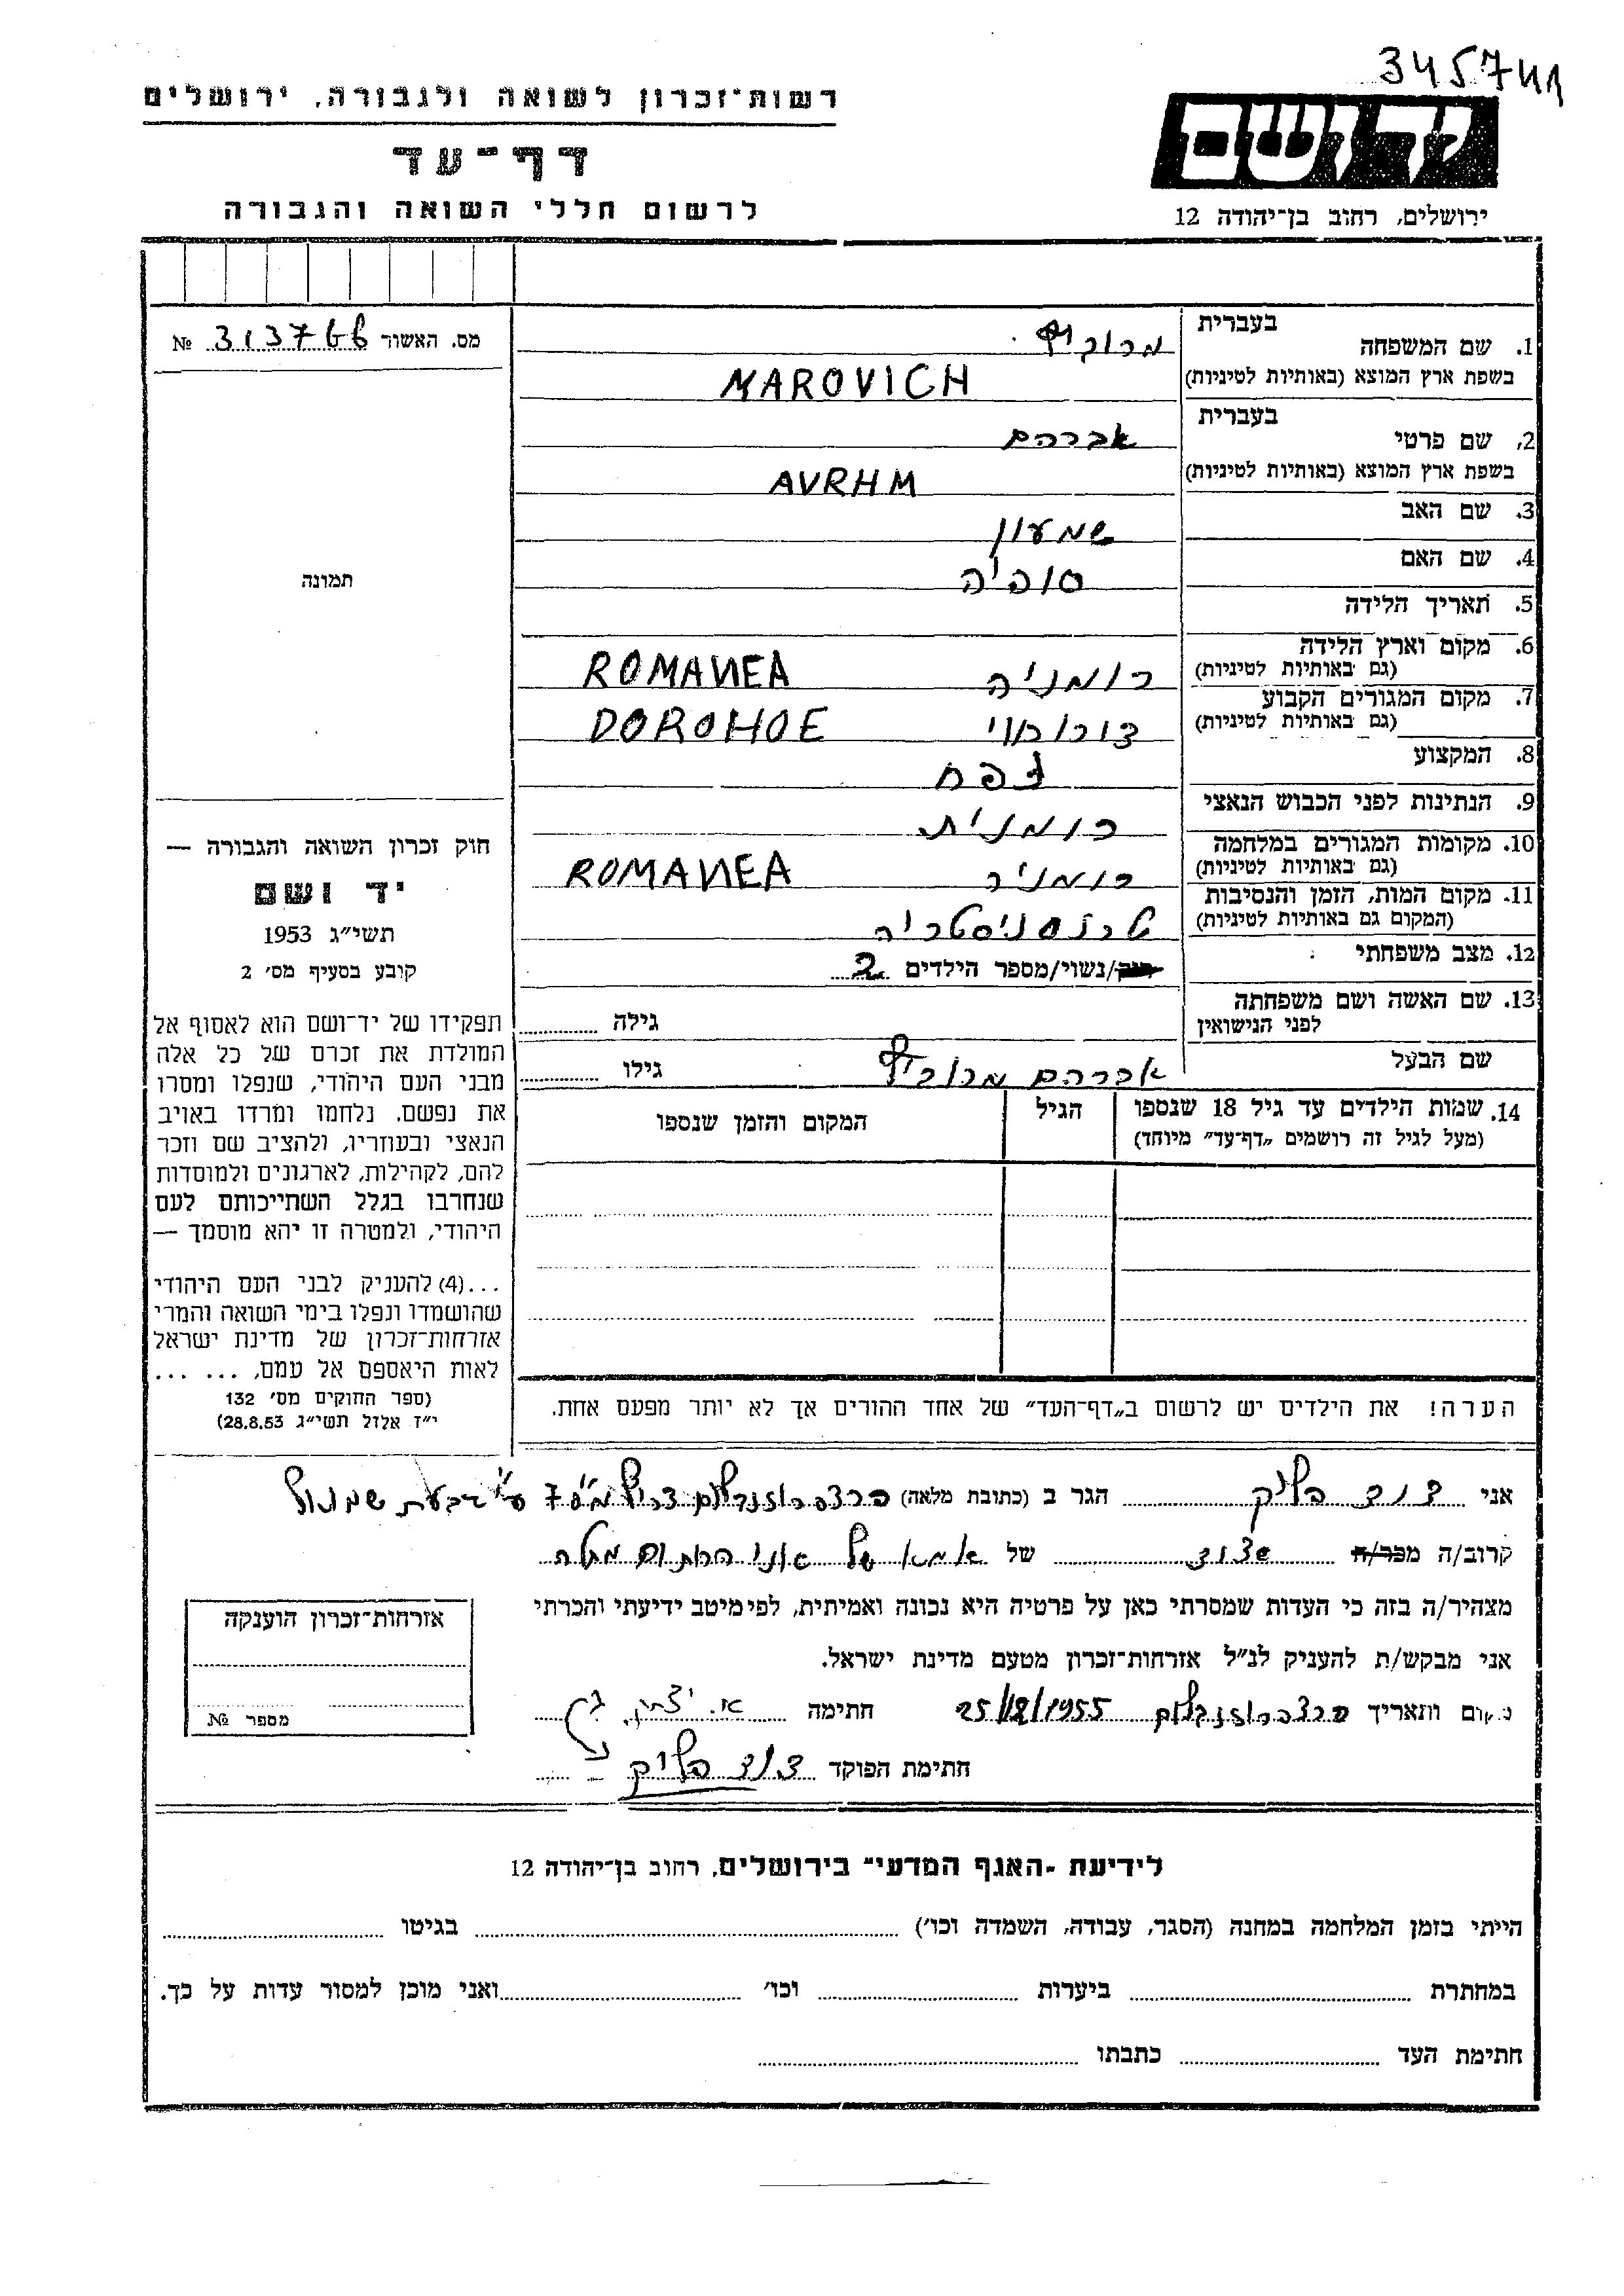 345741
רשות־זכרון לשואה ולגבורה, ירושלים
דף־עד
לרשום חללי השואה והגבורה
יד ושם
ירושלים, רחוב בן־יהודה 12
מס. האשור 313766 №
תמונה
חוק זכרון השואה והגבורה —
יד ושם
תשי״ג 1953
קובע בסעיף מס׳ 2
תפקידו של יד־ושם הוא לאסוף אל
המולדת את זכרם של כל אלה
מבני העם היהודי, שנפלו ומסרו
את נפשם. נלחמו ומרדו באויב
הנאצי ובעוזריו, ולהציב שם וזכר
להם, לקהילות, לארגונים ולמוסדות
שנחרבו בגלל השתייכותם לעם
היהודי, ולמטרה זו יהא מוסמך —
...(4) להעניק לבני העם היהודי
שהושמדו ונפלו בימי השואה והמרי
אזרחות־זכרון של מדינת ישראל
לאות היאספם אל עמם, ... ...
(ספר החוקים מס׳ 132
י״ז אלול תשי״ג 28.8.53)
1. שם המשפחה בעברית מרוביץ
בשפת ארץ המוצא (באותיות לטיניות) MAROVICH
2. שם פרטי בעברית אברהם
בשפת ארץ המוצא (באותיות לטיניות) AVRHM
3. שם האב שמעון
4. שם האם סופיה
5. תאריך הלידה
6. מקום וארץ הלידה (גם באותיות לטיניות) רומניה ROMANEA
7. מקום המגורים הקבוע (גם באותיות לטיניות) דורוהוי DOROHOE
8. המקצוע נפח
9. הנתינות לפני הכבוש הנאצי רומנית
10. מקומות המגורים במלחמה (גם באותיות לטיניות) רומניה ROMANEA
11. מקום המות, הזמן והנסיבות (המקום גם באותיות לטיניות) טרנסניסטריה
12. מצב משפחתי רווק/נשוי/מספר הילדים 2
13. שם האשה ושם משפחתה לפני הנישואין גילה
שם הבעל אברהם מרוביץ גילו
14. שמות הילדים עד גיל 18 שנספו הגיל המקום והזמן שנספו
(מעל לגיל זה רושמים „דף־עד״ מיוחד)
הערה! את הילדים יש לרשום ב„דף־העד״ של אחד ההורים אך לא יותר מפעם אחת.
אני דוד הגר ב (כתובת מלאה)
קרוב/ה מכר/ה של אמא של
מצהיר/ה בזה כי העדות שמסרתי כאן על פרטיה היא נכונה ואמיתית, לפי מיטב ידיעתי והכרתי
אני מבקש/ת להעניק לנ״ל אזרחות־זכרון מטעם מדינת ישראל.
מקום ותאריך 25/12/1955 חתימה
חתימת הפוקד דוד
אזרחות־זכרון הוענקה
מספר №
לידיעת „האגף המדעי״ בירושלים, רחוב בן־יהודה 12
הייתי בזמן המלחמה במחנה (הסגר, עבודה, השמדה וכו׳) בגיטו
במחתרת ביערות וכו׳ ואני מוכן למסור עדות על כך.
חתימת העד כתבתו